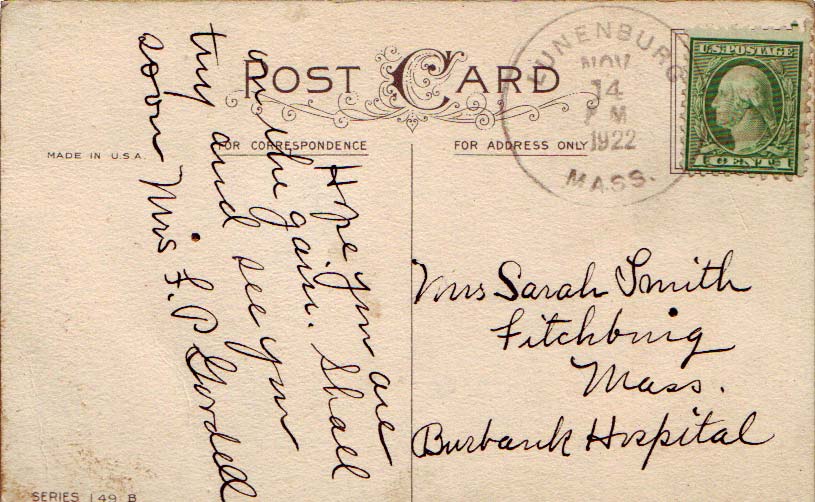 POST CARD
FOR CORRESPONDENCE
FOR ADDRESS ONLY
MADE IN U.S.A.
LUNENBURG
NOV
14
M
1922
MASS.
U.S. POSTAGE
1 CENT 1
Hope you are
on the gain. Shall
try and see you
soon Mrs F. P.
Mrs Sarah Smith
Fitchburg
Mass.
Burbank Hospital
SERIES 149 B